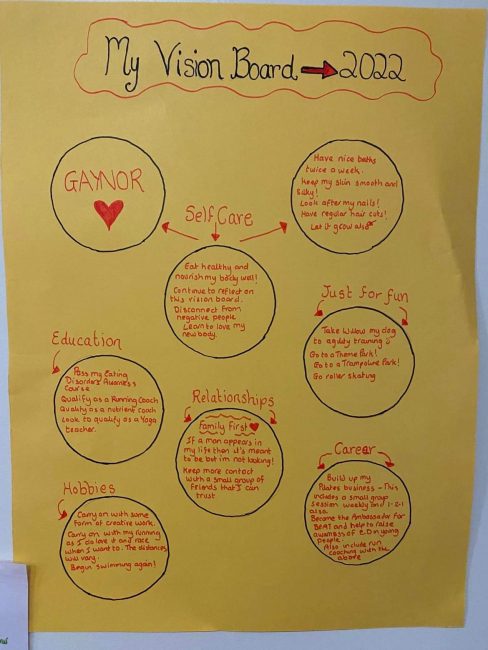 My Vision Board → 2022
GAYNOR
Self Care
Have nice baths
twice a week.
Keep my skin smooth and
silky!
Look after my nails!
Have regular hair cuts!
Let it grow also
Eat healthy and
nourish my body well!
Continue to reflect on
this vision board.
Disconnect from
negative people
Learn to love my
new body.
Just for fun
Take Willow my dog
to agility training
Go to a Theme Park!
Go to a Trampoline Park!
Go roller skating
Education
Pass my Eating
Disorders Awareness
Course
Qualify as a Running Coach
Qualify as a nutrient coach
Look to qualify as a Yoga
teacher.
Relationships
Family first
If a man appears in
my life then it's meant
to be but im not looking!
Keep more contact
with a small group of
friends that I can
trust
Career
Build up my
Pilates business - This
includes a small group
session weekly and 1-2-1
also.
Become the Ambassador For
BEAT and help to raise
awareness of E.D in young
people.
Also include run
coaching with the
above
Hobbies
Carry on with some
form of creative work.
Carry on with my running
as I do love it and race
when I want to. The distances
will vary.
Begin swimming again!